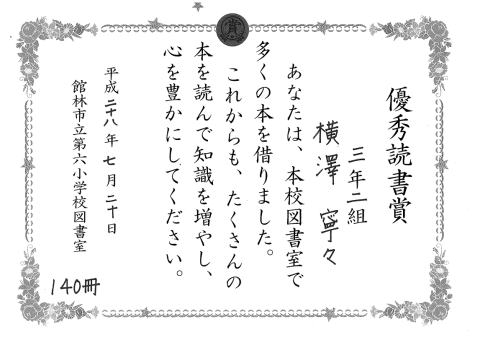 賞
優秀読書賞
三年二組
横澤寧々
あなたは、本校図書室で
多くの本を借りました。
これからも、たくさんの
本を読んで知識を増やし、
心を豊かにしてください。
平成二十八年七月二十日
館林市立第六小学校図書室
140冊